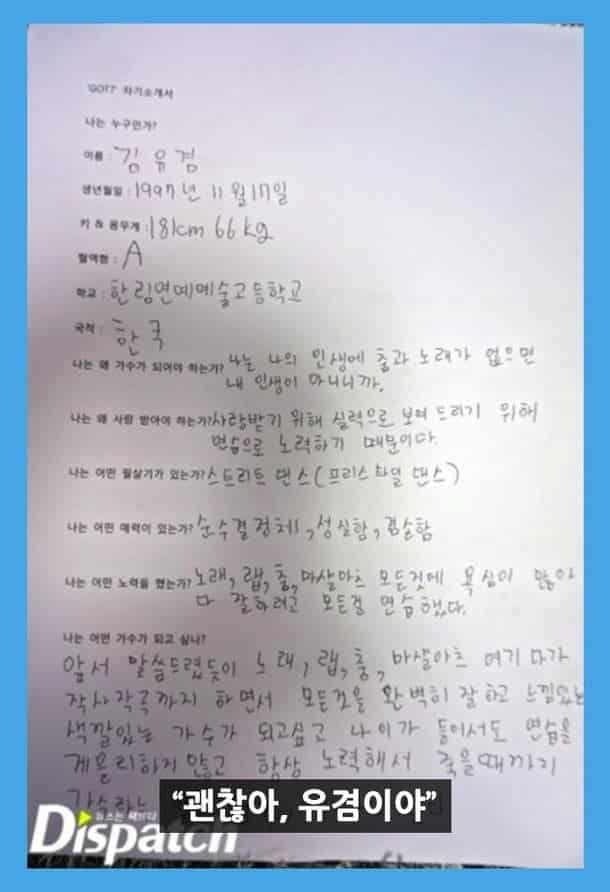 'GOT7' 자기소개서
나는 누구인가?
이름 : 김유겸
생년월일 : 1997년 11월 17일
키 & 몸무게 : 181cm 66kg
혈액형 : A
학교 : 한림연예예술고등학교
국적 : 한국
나는 왜 가수가 되어야 하는가? 나는 나의 인생에 춤과 노래가 없으면
내 인생이 아니니까.
나는 왜 사랑 받아야 하는가? 사랑받기 위해 실력으로 보여 드리기 위해
연습으로 노력하기 때문이다.
나는 어떤 필살기가 있는가? 스트리트 댄스(프리스타일 댄스)
나는 어떤 매력이 있는가? 순수결정체, 성실함, 겸손함
나는 어떤 노력을 했는가? 노래, 랩, 춤, 마샬아츠 모든것에 욕심이 많아
다 잘하려고 모든걸 연습했다.
나는 어떤 가수가 되고 싶나?
앞서 말씀드렸듯이 노래, 랩, 춤, 마샬아츠 여기다가
작사작곡까지 하면서 모든것을 완벽히 잘하고 느낌있는
색깔있는 가수가 되고싶고 나이가 들어서도 연습을
게을리하지않고 항상 노력해서 죽을때까지
가수라는
“괜찮아, 유겸이야”
뉴스는 팩트다
Dispatch